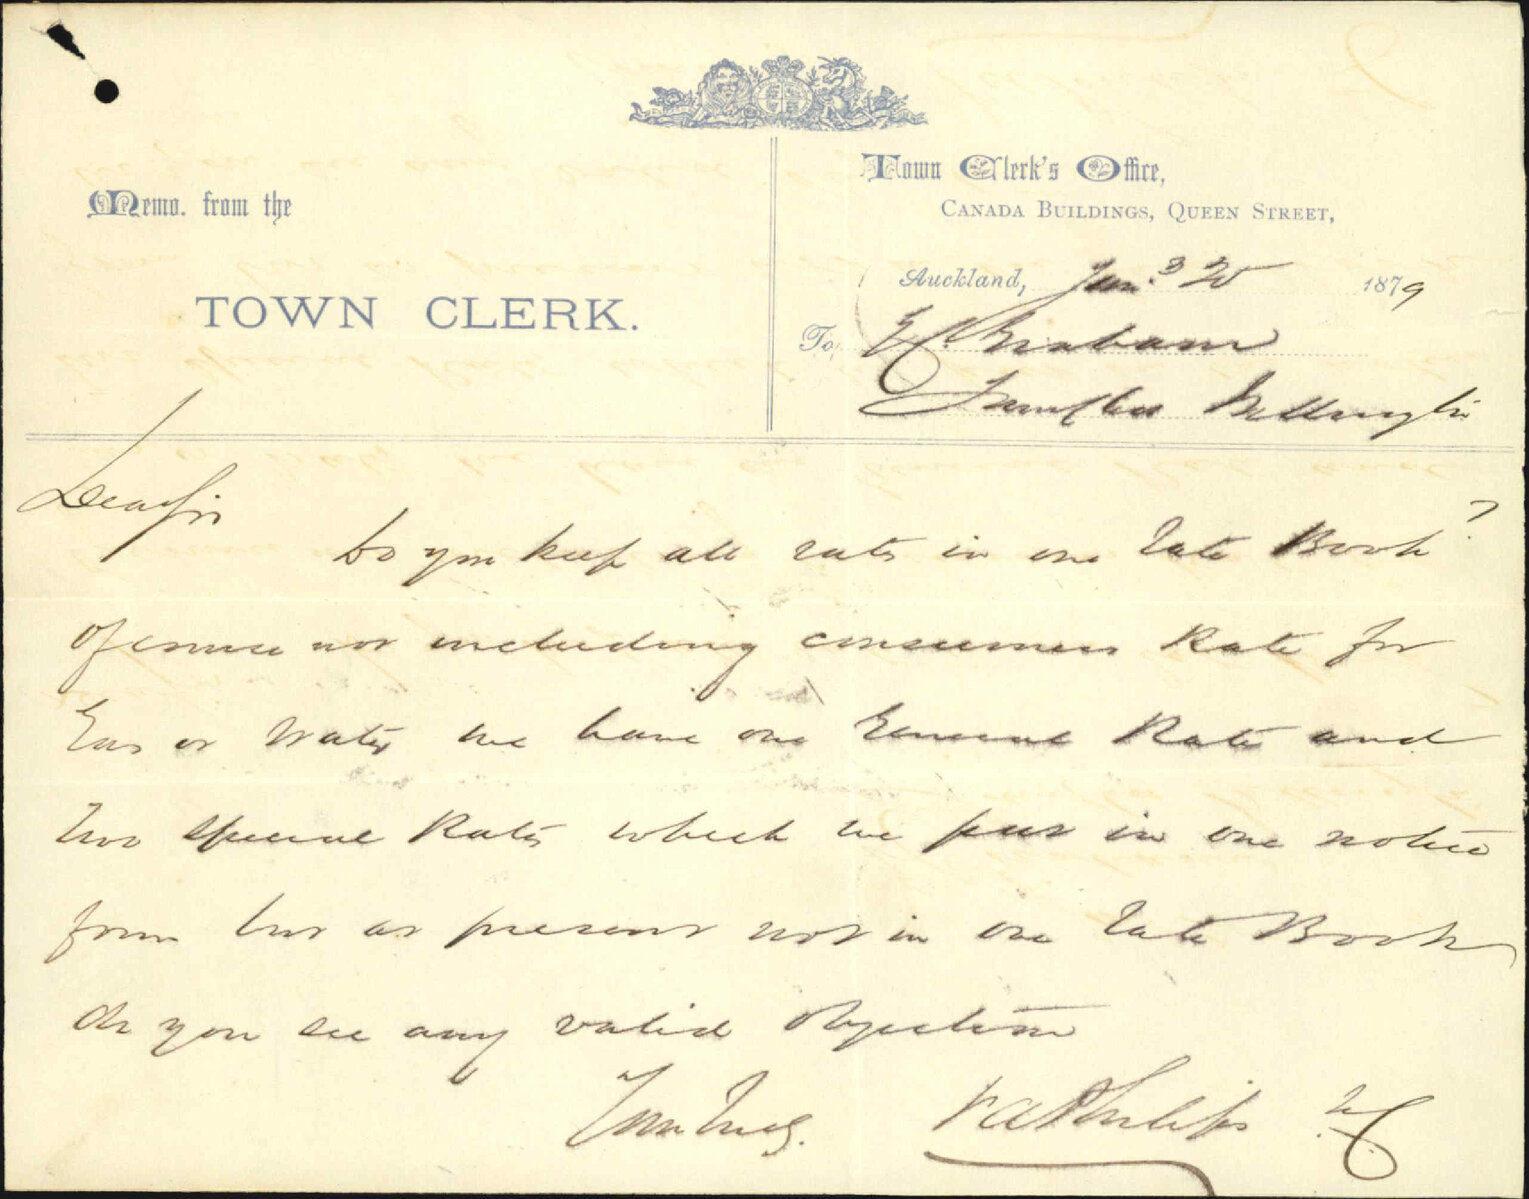 Memo. from the
TOWN CLERK.
Town Clerk's Office,
CANADA BUILDINGS, QUEEN STREET,
Auckland, 1879
To
Dear Sir
Do you keep all rates in one rate Book?
Of course not including consumers Rate for
Gas or Water we have one General Rate and
two special Rates which we put in one notice
form but at present not in one rate Book
do you see any valid objection
Yours truly.
P A Philips T C